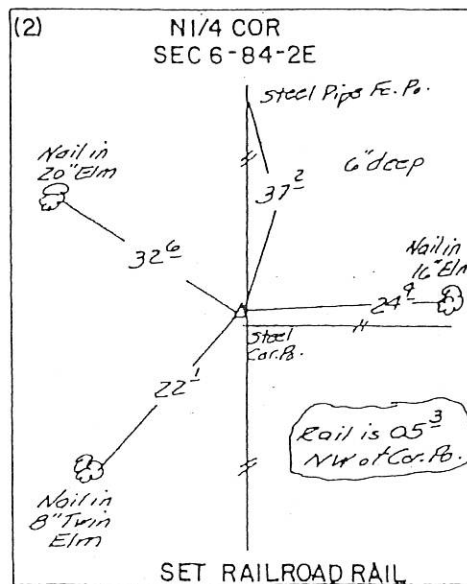 (2)
N1/4 COR
SEC 6-84-2E
Steel Pipe Fc. Po.
Nail in
20" Elm
6" deep
37 2
32 6
Nail in
16" Elm
24 9
Steel
Cor. Po.
22 1
Rail is 05 3
NW of Cor. Po.
Nail in
8" Twin
Elm
SET RAILROAD RAIL